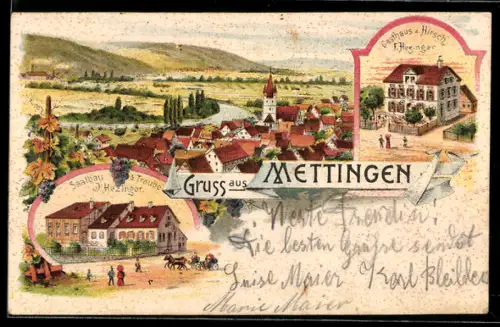 Gasthaus z. Hirsch
F. Hezinger.
Saalbau z. Traube
J. Hezinger.
Gruss aus METTINGEN
Werte Freundin!
Die besten Grüße sendet
Luise Maier Karl
Marie Maier